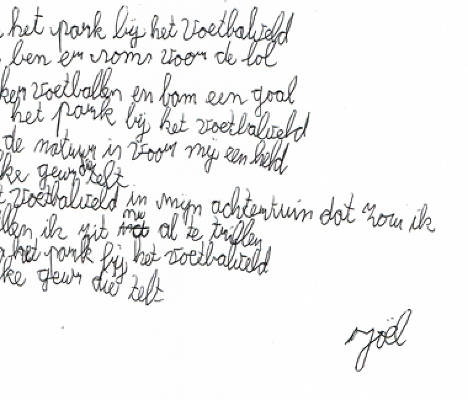 het park bij het voetbalveld
ben er soms voor de lol
ker voetballen en bam een goal
het park bij het voetbalveld
de natuur is voor mij een held
ke geur die telt
t voetbalveld in mijn achtertuin dat zou ik
llen ik zit nu al te trillen
het park bij het voetbalveld
ke geur die telt
Joël